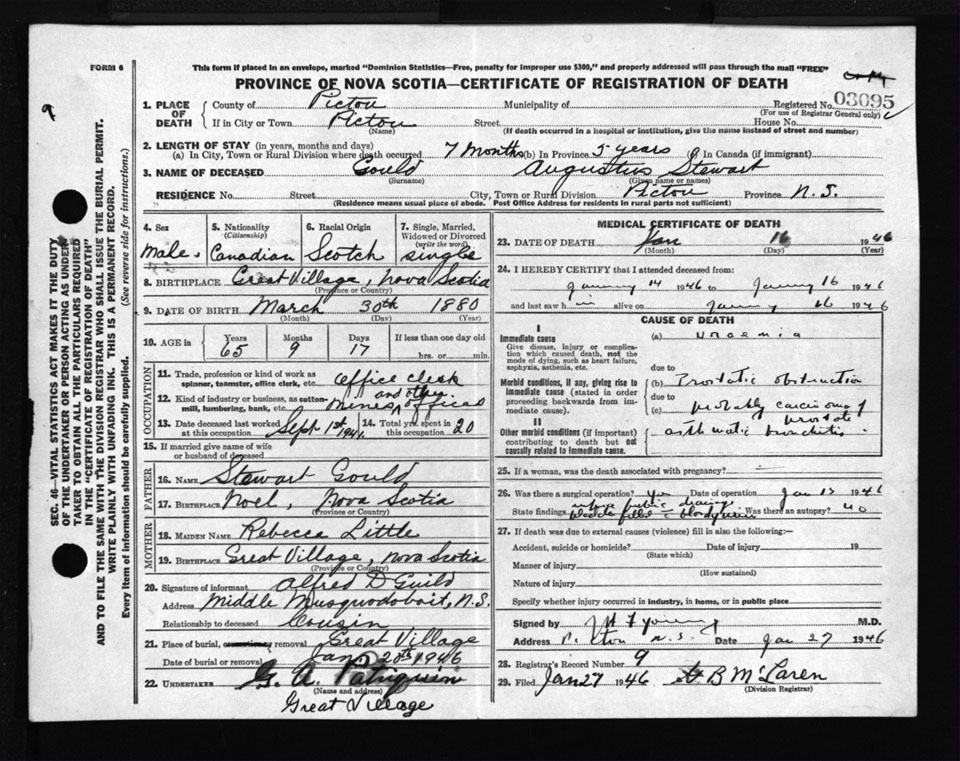 FORM 6
This form if placed in an envelope, marked "Dominion Statistics—Free, penalty for improper use $300," and properly addressed will pass through the mail "FREE"
PROVINCE OF NOVA SCOTIA—CERTIFICATE OF REGISTRATION OF DEATH
copy
9
SEC. 46—VITAL STATISTICS ACT MAKES IT THE DUTY
OF THE UNDERTAKER OR PERSON ACTING AS UNDER-
TAKER TO OBTAIN ALL THE PARTICULARS REQUIRED
IN THE "CERTIFICATE OF REGISTRATION OF DEATH"
AND TO FILE THE SAME WITH THE DIVISION REGISTRAR WHO SHALL ISSUE THE BURIAL PERMIT.
WRITE PLAINLY WITH UNFADING INK. THIS IS A PERMANENT RECORD.
Every item of information should be carefully supplied. (See reverse side for instructions.)
1. PLACE OF DEATH
County of Pictou Municipality of Registered No. 03095
(For use of Registrar General only)
If in City or Town Pictou Street House No.
(Name) (If death occurred in a hospital or institution, give the name instead of street and number)
2. LENGTH OF STAY (in years, months and days)
(a) In City, Town or Rural Division where death occurred 7 months (b) In Province 5 years (c) In Canada (if immigrant)
3. NAME OF DECEASED Gould Augustus Stewart
(Surname) (Given name or names)
RESIDENCE No. Street City, Town or Rural Division Pictou Province N.S.
(Residence means usual place of abode. Post Office Address for residents in rural parts not sufficient)
4. Sex 5. Nationality (Citizenship) 6. Racial Origin 7. Single, Married, Widowed or Divorced (write the word)
Male. Canadian Scotch single
8. BIRTHPLACE Great Village, Nova Scotia
(Province or Country)
9. DATE OF BIRTH March 30th 1880
(Month) (Day) (Year)
10. AGE in Years Months Days If less than one day old
65 9 17 hrs. or min.
OCCUPATION
11. Trade, profession or kind of work as spinner, teamster, office clerk, etc. office clerk
12. Kind of industry or business, as cotton-mill, lumbering, bank, etc. mines and other offices
13. Date deceased last worked at this occupation Sept 1st 1941 14. Total yrs. spent in this occupation 20
15. If married give name of wife or husband of deceased
FATHER
16. NAME Stewart Gould
17. BIRTHPLACE Noel, Nova Scotia
(Province or Country)
MOTHER
18. MAIDEN NAME Rebecca Little
19. BIRTHPLACE Great Village Nova Scotia
(Province or Country)
20. Signature of informant Alfred D Guild
Address Middle Musquodoboit, N.S.
Relationship to deceased Cousin
21. Place of burial, cremation or removal Great Village
Date of burial or removal Jan 20th 1946
22. UNDERTAKER G. A. Patriquin
(Name and address)
Great Village
MEDICAL CERTIFICATE OF DEATH
23. DATE OF DEATH Jan 16 1946
(Month) (Day) (Year)
24. I HEREBY CERTIFY that I attended deceased from:
January 14 1946 to January 16 1946
and last saw him alive on January 16 1946
CAUSE OF DEATH
I
Immediate cause
Give disease, injury or complication which caused death, not the mode of dying, such as heart failure, asphyxia, asthenia, etc.
(a) uraemia
due to
Morbid conditions, if any, giving rise to immediate cause (stated in order proceeding backwards from immediate cause).
(b) Prostatic obstruction
due to
(c) probably carcinoma of prostate
II
Other morbid conditions (if important) contributing to death but not causally related to immediate cause.
asthmatic bronchitis
25. If a woman, was the death associated with pregnancy?
26. Was there a surgical operation? Yes Date of operation Jan 1946
State findings bladder filled Was there an autopsy? no
27. If death was due to external causes (violence) fill in also the following:—
Accident, suicide or homicide? Date of injury 19
(State which)
Manner of injury
(How sustained)
Nature of injury
Specify whether injury occurred in industry, in home, or in public place
Signed by Young M.D.
Address Pictou N.S. Date Jan 27 1946
28. Registrar's Record Number 9
29. Filed Jan 27 1946 B McLaren
(Division Registrar)